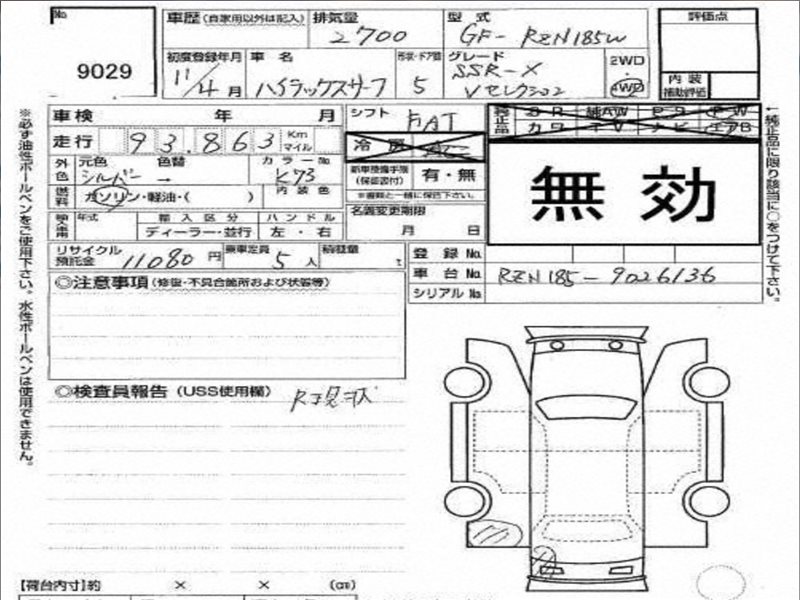 No
9029
車歴(自家用以外は記入) 排気量 2700 型式 GF-RZN185W
初度登録年月 11/4月 車名 ハイラックスサーフ 形状・ドア数 5 グレード SSR-X Vセレクション 2WD 4WD
評価点
内装補助評価
車検 年 月 シフト FAT
走行 93,863 Km マイル 冷房 AC
純正品 SR 純AW PS PW
カワ TV ナビ エアB
外色 元色 シルバー 色替 → カラーNo K73 内装色
新車整備手帳(保証書付) 有・無
※書類と一緒に保管下さい。
無効
燃料 ガソリン・軽油・( )
輸入車用 年式 輸入区分 ディーラー・並行 ハンドル 左・右
名義変更期限 月 日
リサイクル預託金 11080円 乗車定員 5人 積載量 t
登録No.
車台No. RZN185-9026136
シリアルNo.
◎注意事項(修復・不具合箇所および状態等)
◎検査員報告(USS使用欄)
【荷台内寸】約 × × (cm)
※必ず油性ボールペンをご使用下さい。水性ボールペンは使用できません。
↑純正品に限り該当に○をつけて下さい。